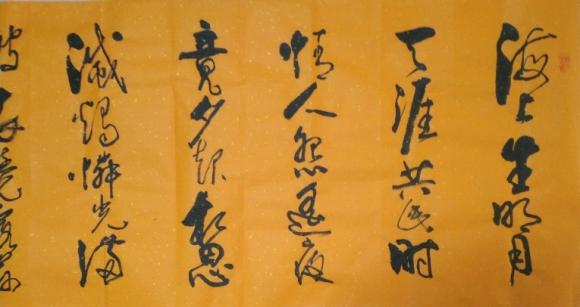 海上生明月
天涯共此时
情人怨遥夜
竟夕起相思
滅燭憐光滿